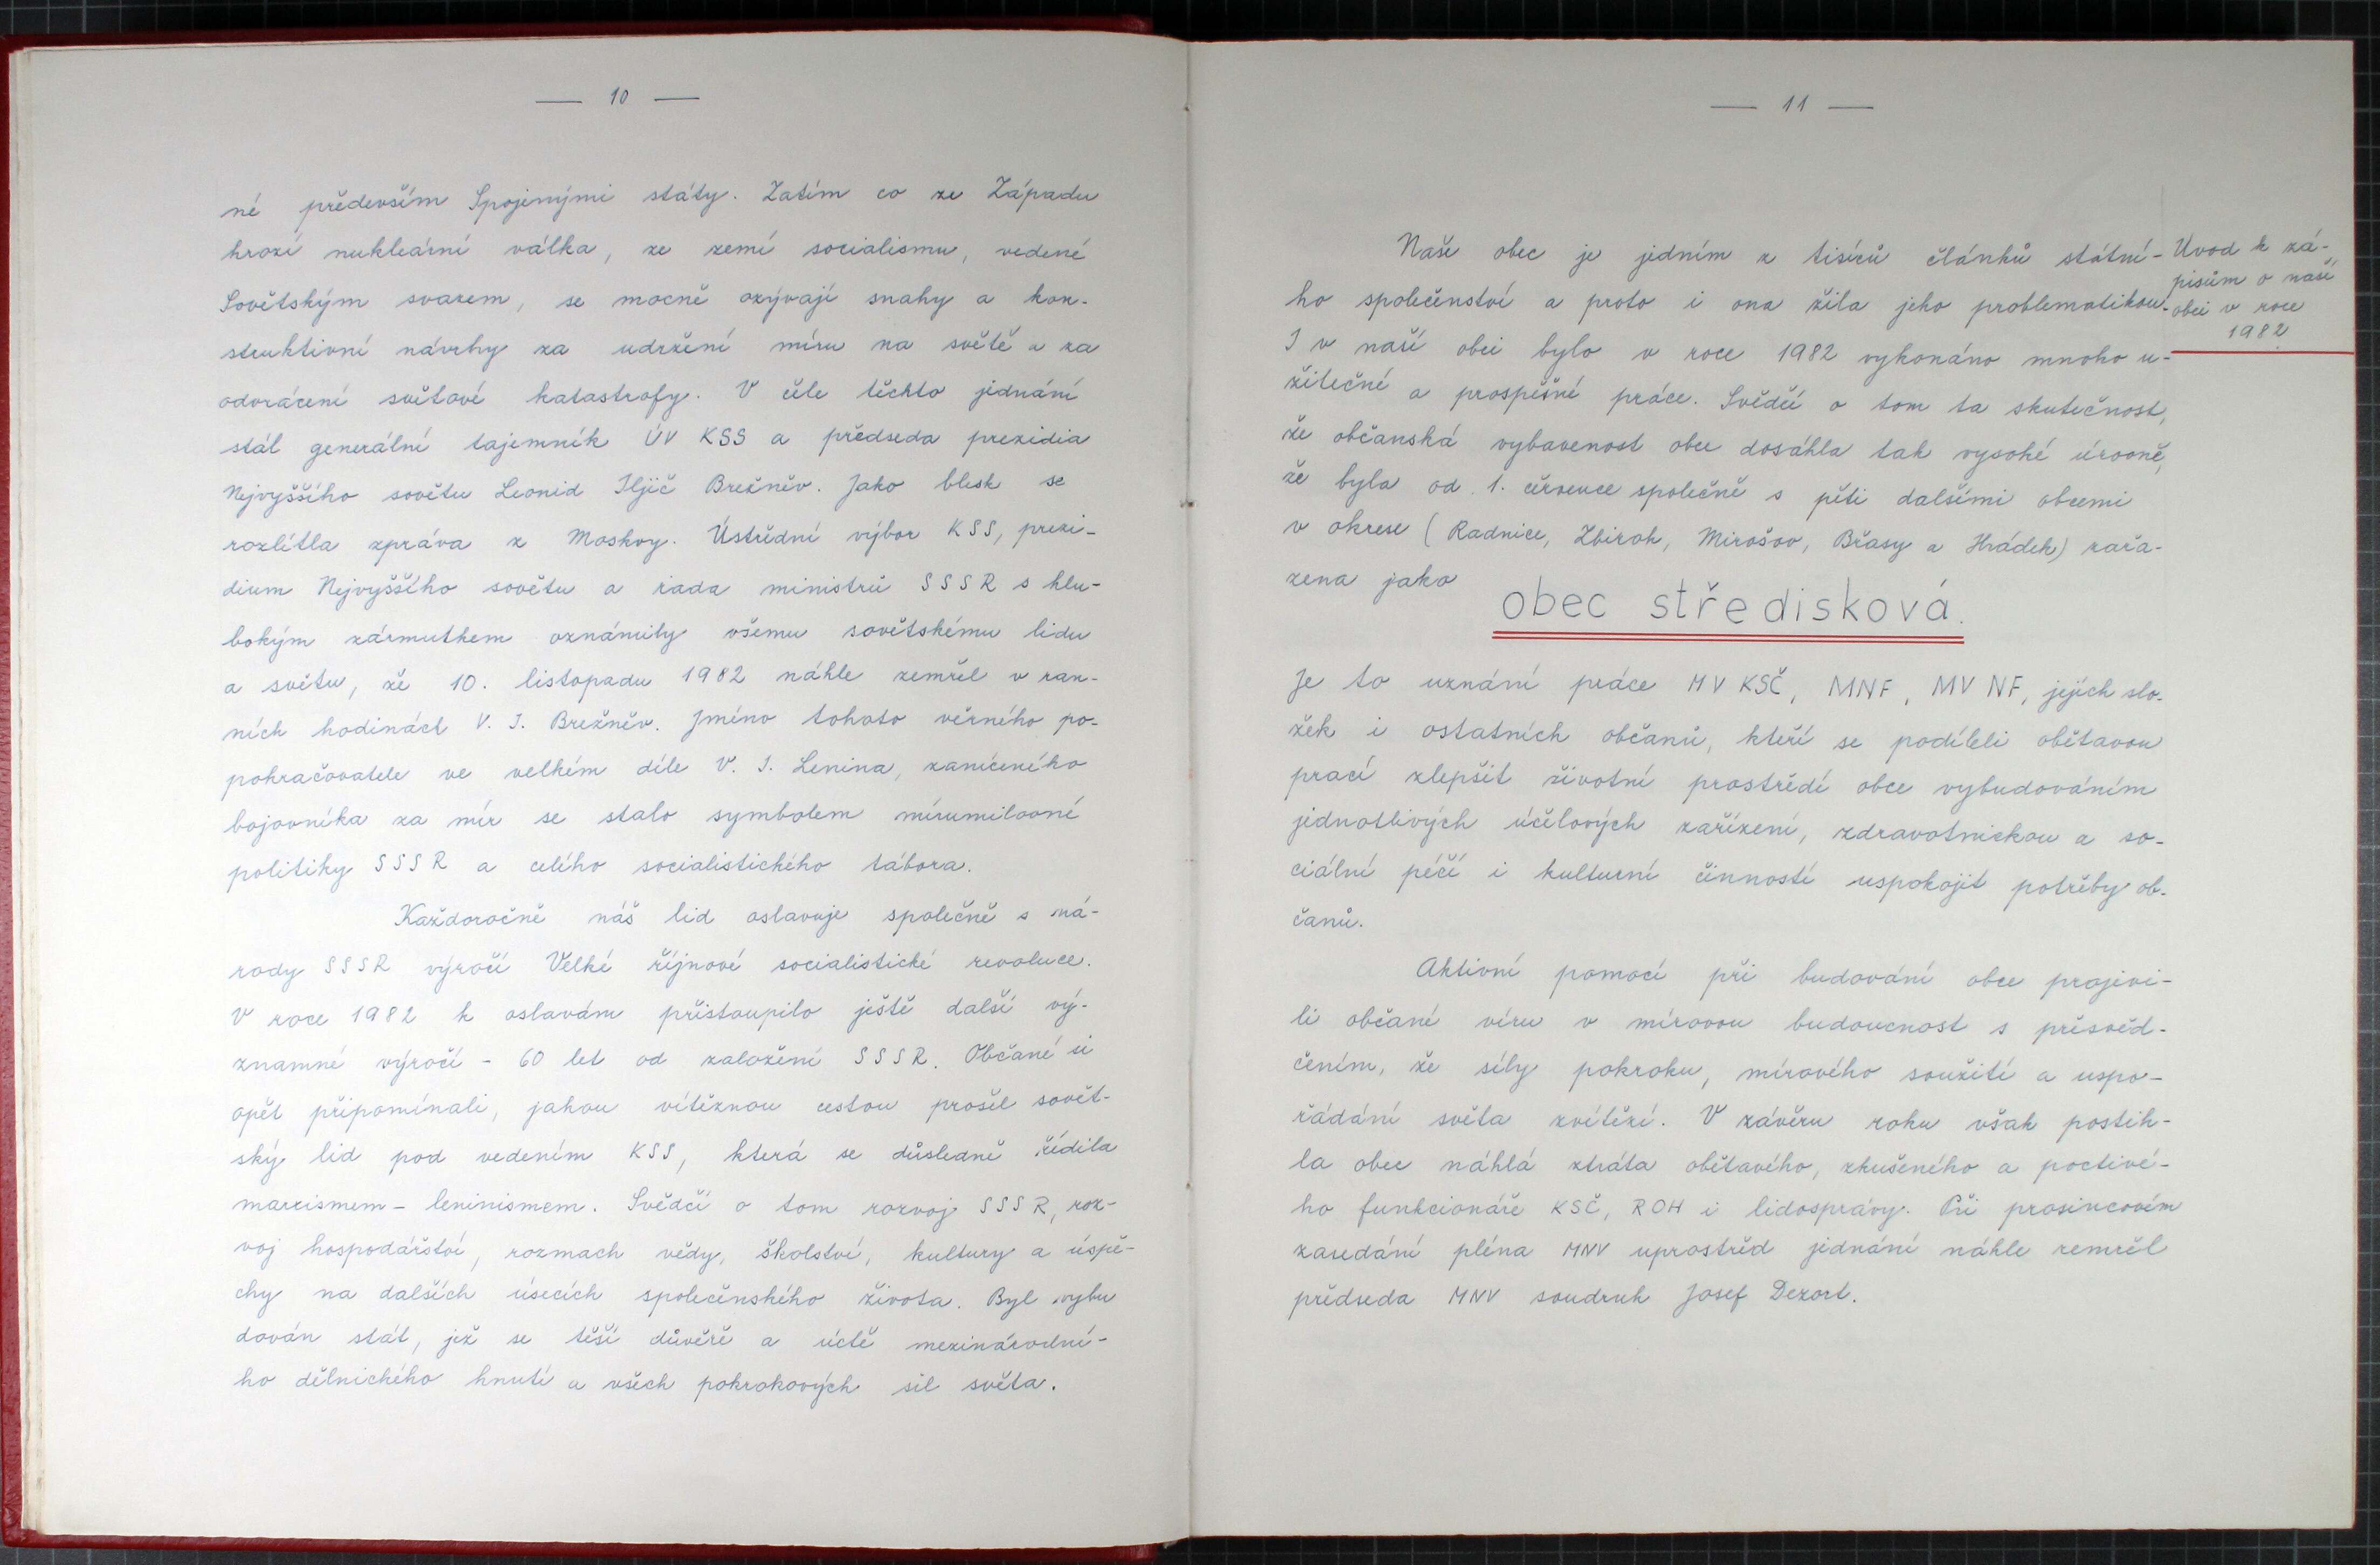 — 10 —
né především Spojenými státy. Zatím co ze Západu
hrozí nukleární válka, ze zemí socialismu, vedené
Sovětským svazem, se mocně ozývají snahy a kon-
struktivní návrhy za udržení míru na světě a za
odvrácení světové katastrofy. V čele těchto jednání
stál generální tajemník ÚV KSS a předseda prezidia
Nejvyššího sovětu Leonid Iljič Brežněv. Jako blesk se
rozlétla zpráva z Moskvy. Ústřední výbor KSS, prezi-
dium Nejvyššího sovětu a rada ministrů SSSR s hlu-
bokým zármutkem oznámily všemu sovětskému lidu
a světu, že 10. listopadu 1982 náhle zemřel v ran-
ních hodinách V. I. Brežněv. Jméno tohoto věrného po-
pohračovatele ve velkém díle V. I. Lenina, zaníceného
bojovníka za mír se stalo symbolem mírumilovné
politiky SSSR a celého socialistického tábora.
Každoročně náš lid oslavuje společně s ná-
rody SSSR výročí Velké říjnové socialistické revoluce.
V roce 1982 k oslavám přistoupilo ještě další vý-
znamné výročí - 60 let od založení SSSR. Občané si
opět připomínali, jakou vítěznou cestou prošel sovět-
ský lid pod vedením KSS, která se důsledně řídila
marxismem - leninismem. Svědčí o tom rozvoj SSSR, roz-
voj hospodářství, rozmach vědy, školství, kultury a úspě-
chy na dalších úsecích společenského života. Byl vybu
dován stát, jež se těší důvěře a úctě mezinárodní-
ho dělnického hnutí a všech pokrokových sil světa.
— 11 —
Úvod k zá-
pisům o naší
obci v roce
1982
Naše obec je jedním z tisíců článků státní-
ho společenství a proto i ona žila jeho problematikou.
I v naší obci bylo v roce 1982 vykonáno mnoho u-
žitečné a prospěšné práce. Svědčí o tom ta skutečnost,
že občanská vybavenost obce dosáhla tak vysoké úrovně,
že byla od 1. července společně s pěti dalšími obcemi
v okrese (Radnice, Zbiroh, Mirošov, Břasy a Hrádek) zařa-
zena jako
obec středisková.
Je to uznání práce MV KSČ, MNF, MV NF, jejich slo-
žek i ostatních občanů, kteří se podíleli obětavou
prací zlepšit životní prostředí obce vybudováním
jednotlivých účelových zařízení, zdravotnickou a so-
ciální péčí i kulturní činností uspokojit potřeby ob-
čanů.
Aktivní pomocí při budování obce projevi-
li občané víru v mírovou budoucnost s přesvěd-
čením, že síly pokroku, mírového soužití a uspo-
řádání světa zvítězí. V závěru roku však postih-
la obec náhlá ztráta obětavého, zkušeného a poctivé-
ho funkcionáře KSČ, ROH i lidosprávy. Při prosincovém
zasedání pléna MNV uprostřed jednání náhle zemřel
předseda MNV soudruh Josef Dezort.